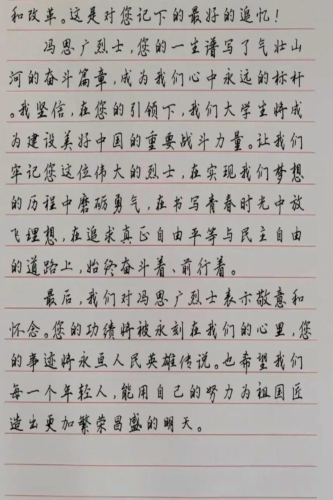 和改革。这是对您记下的最好的追忆！
冯恩广烈士，您的一生谱写了气壮山
河的奋斗篇章，成为我们心中永远的标杆
。我坚信，在您的引领下，我们大学生将成
为建设美好中国的重要战斗力量。让我们
牢记您这位伟大的烈士，在实现我们梦想
的历程中磨砺勇气，在书写青春时光中放
飞理想，在追求真正自由平等与民主自由
的道路上，始终奋斗着、前行着。
最后，我们对冯恩广烈士表示敬意和
怀念。您的功绩将被永刻在我们的心里，您
的事迹将永亘人民英雄传说。也希望我们
每一个年轻人，能用自己的努力为祖国匠
造出更加繁荣昌盛的明天。